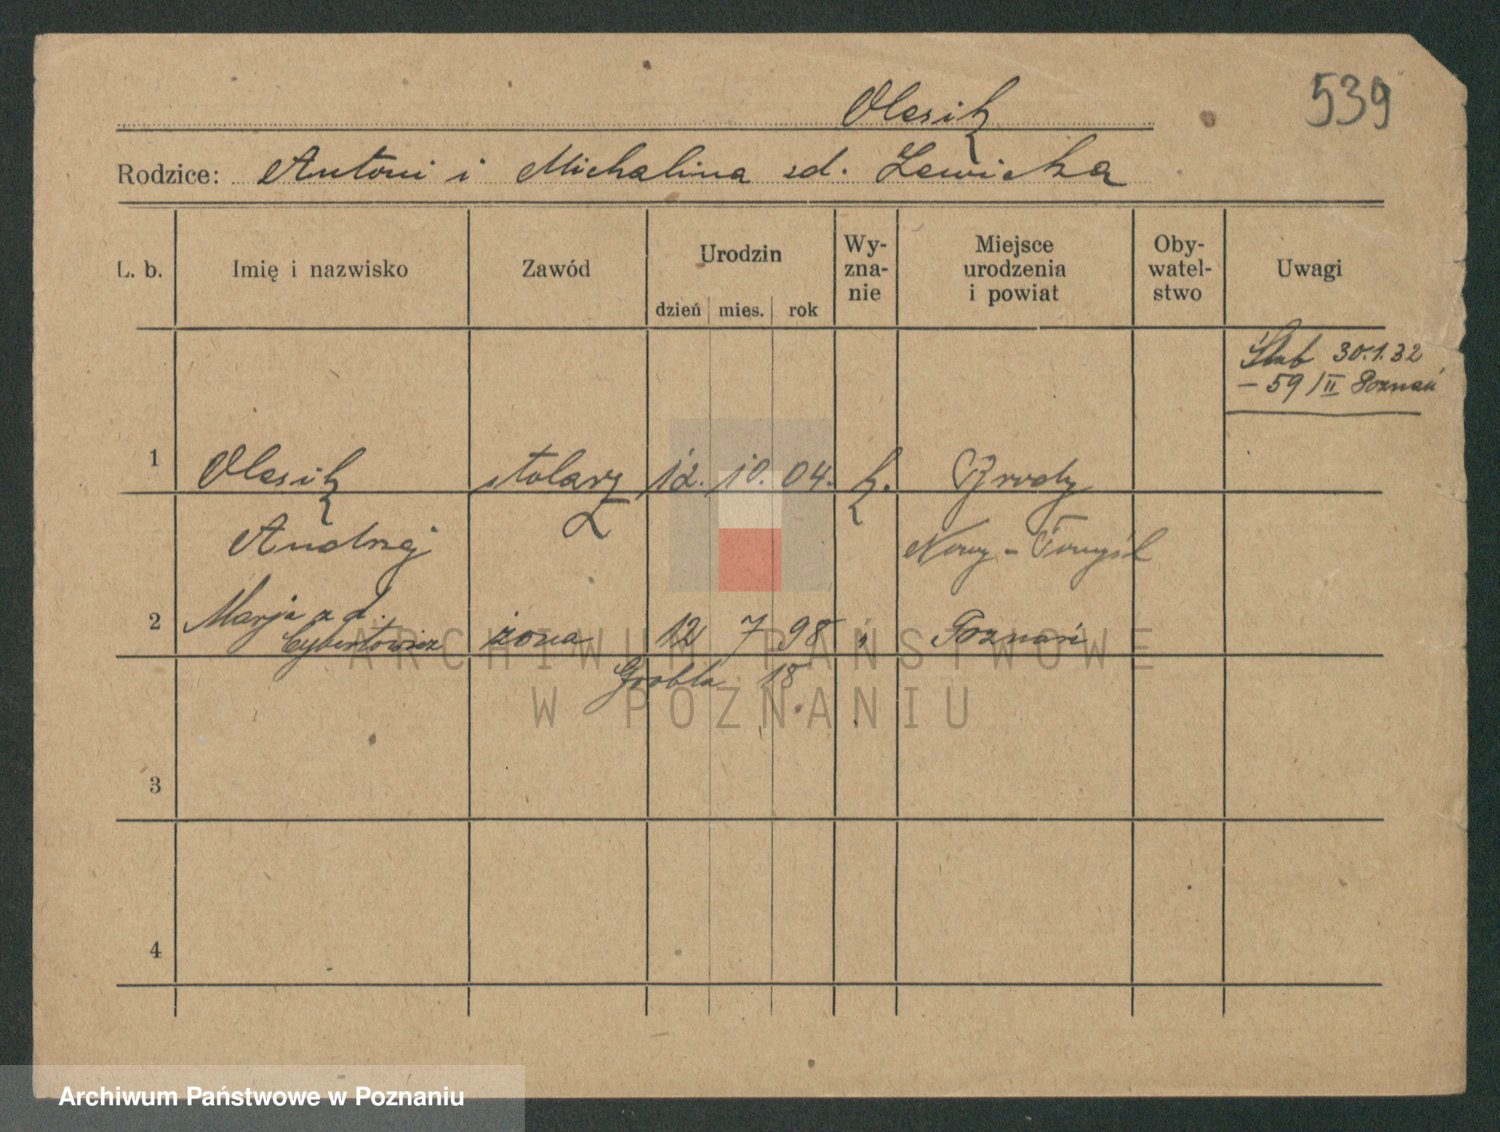 Olesik
539
Rodzice: Antoni i Michalina zd. Lewicka
L. b.
Imię i nazwisko
Zawód
Urodzin
dzień mies. rok
Wy-
zna-
nie
Miejsce
urodzenia
i powiat
Oby-
watel-
stwo
Uwagi
Ślub 30.1.32
– 59/II Poznań
1 Olesik stolarz 12. 10. 04. k. Brody
Andrzej Nowy-Tomyśl
2 Marja zd. Cybertowicz żona 12 7 98 " Poznań
Grobla 18
3
4
ARCHIWUM PAŃSTWOWE
W POZNANIU
Archiwum Państwowe w Poznaniu